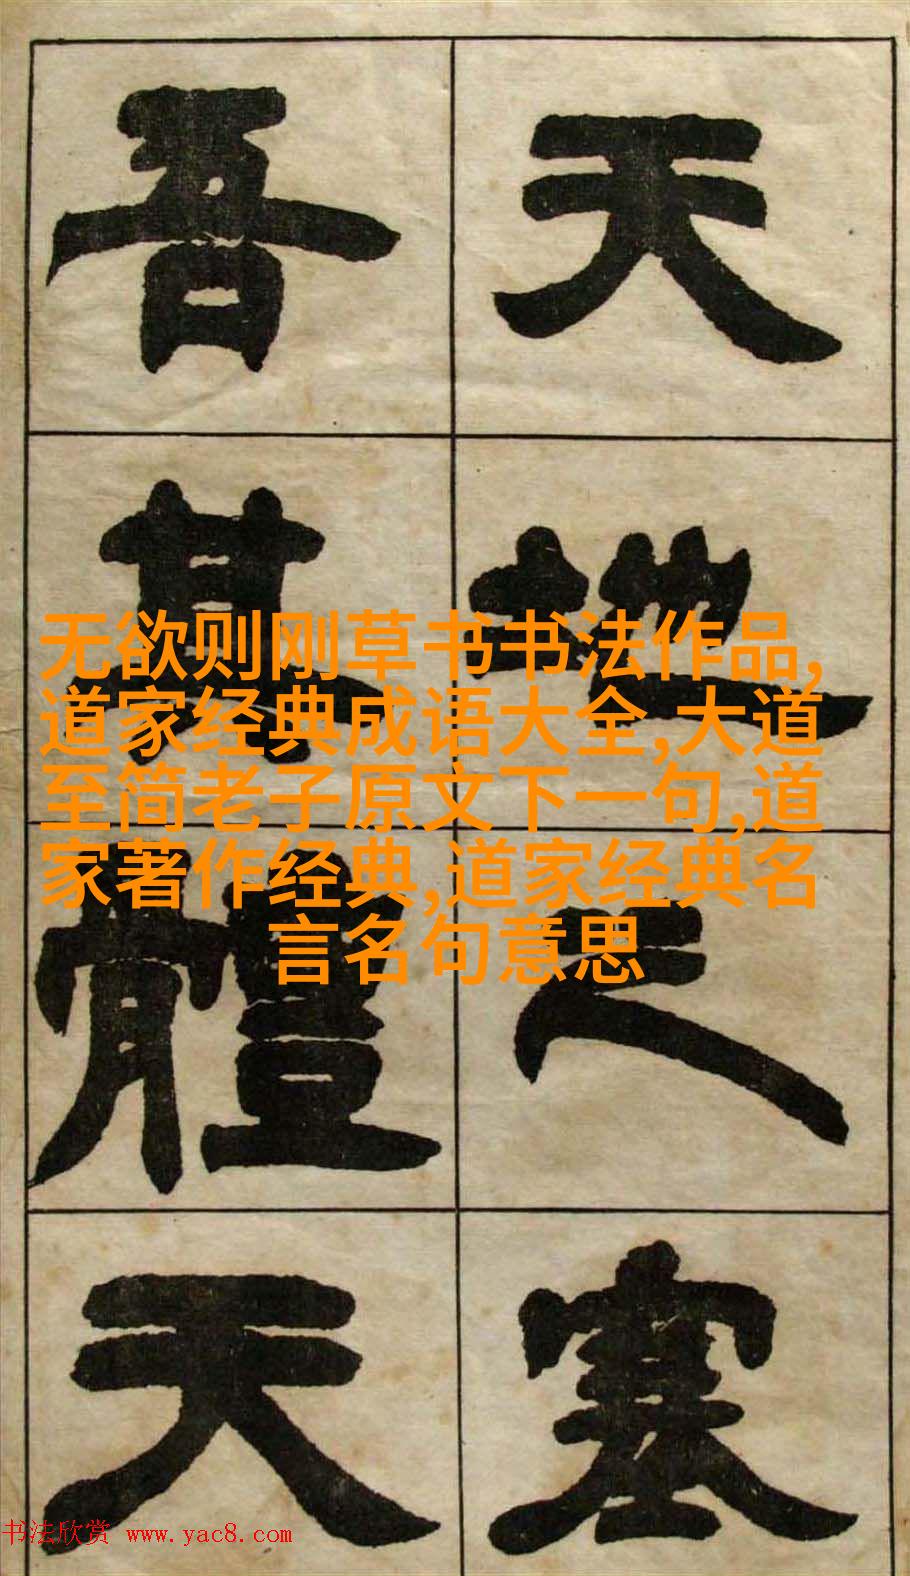 天地之塞
吾其體天
无欲则刚草书书法作品,
道家经典成语大全,大道
至简老子原文下一句,道
家著作经典,道家经典名
言名句意思
书法欣赏 www.yac8.com